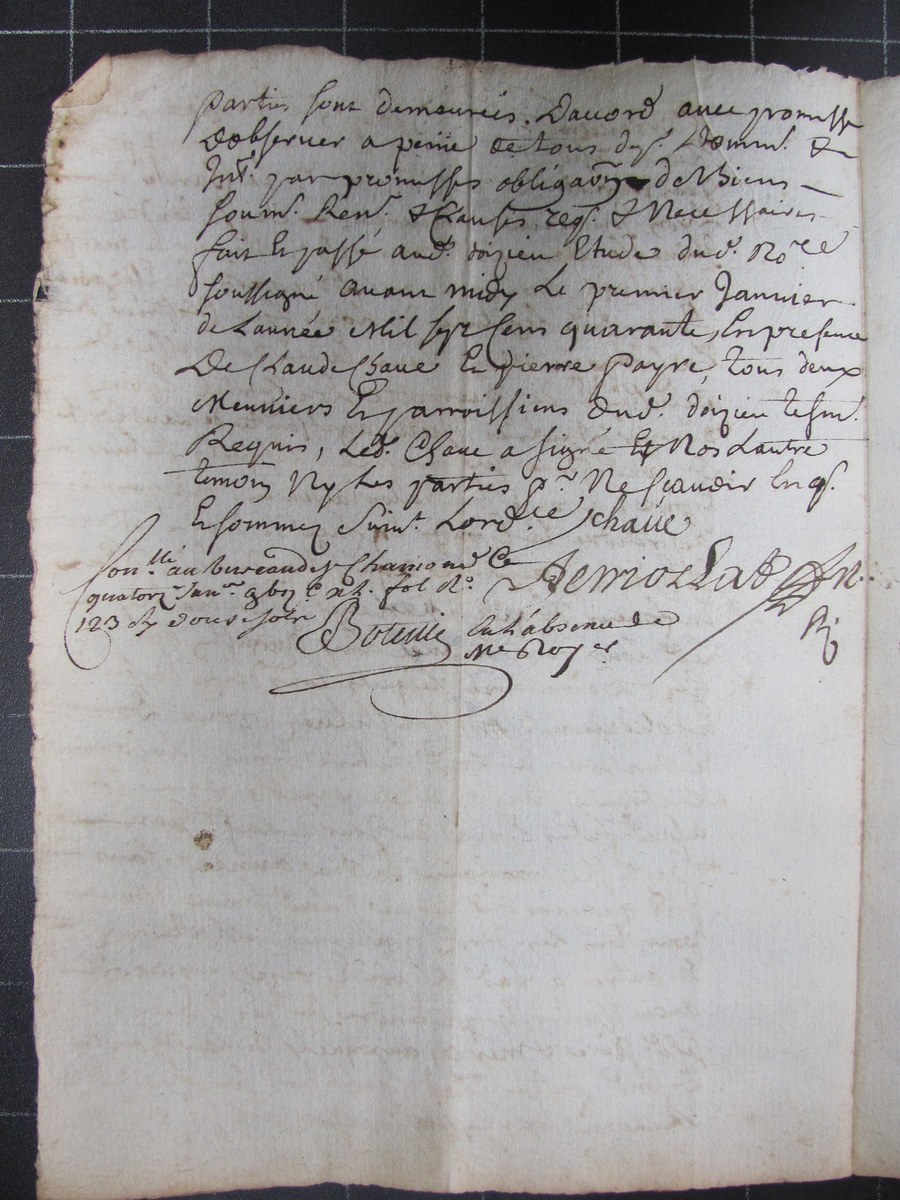 parties sont demeurées. Daccord avec promesse
dobserver a peine de tous des. & domm. &
Int. par promesses obligaõn de Biens
soum. Ren. & Clauses req. & Necessaires
fait Et passé aud. doizieu Etude dud. No.re
soussigné avant midy Le premier Janvier
de Lannée Mil sept Cens quarante, En presence
De Claude Chave Et pierre payre, tous deux
Meuniers Et parroissiens dud. doizieu tesm.
Requis, Led. Chave a signé Et Non Lautre
temoin Ny Les parties p.r Ne scavoir Enq.
Et sommez suiv. Lord.ce chave
Con.llé au bureau de St Chamond Ce
quatorz. Janv.r 
123 R. douze sols
en Labsence de
Me Royer